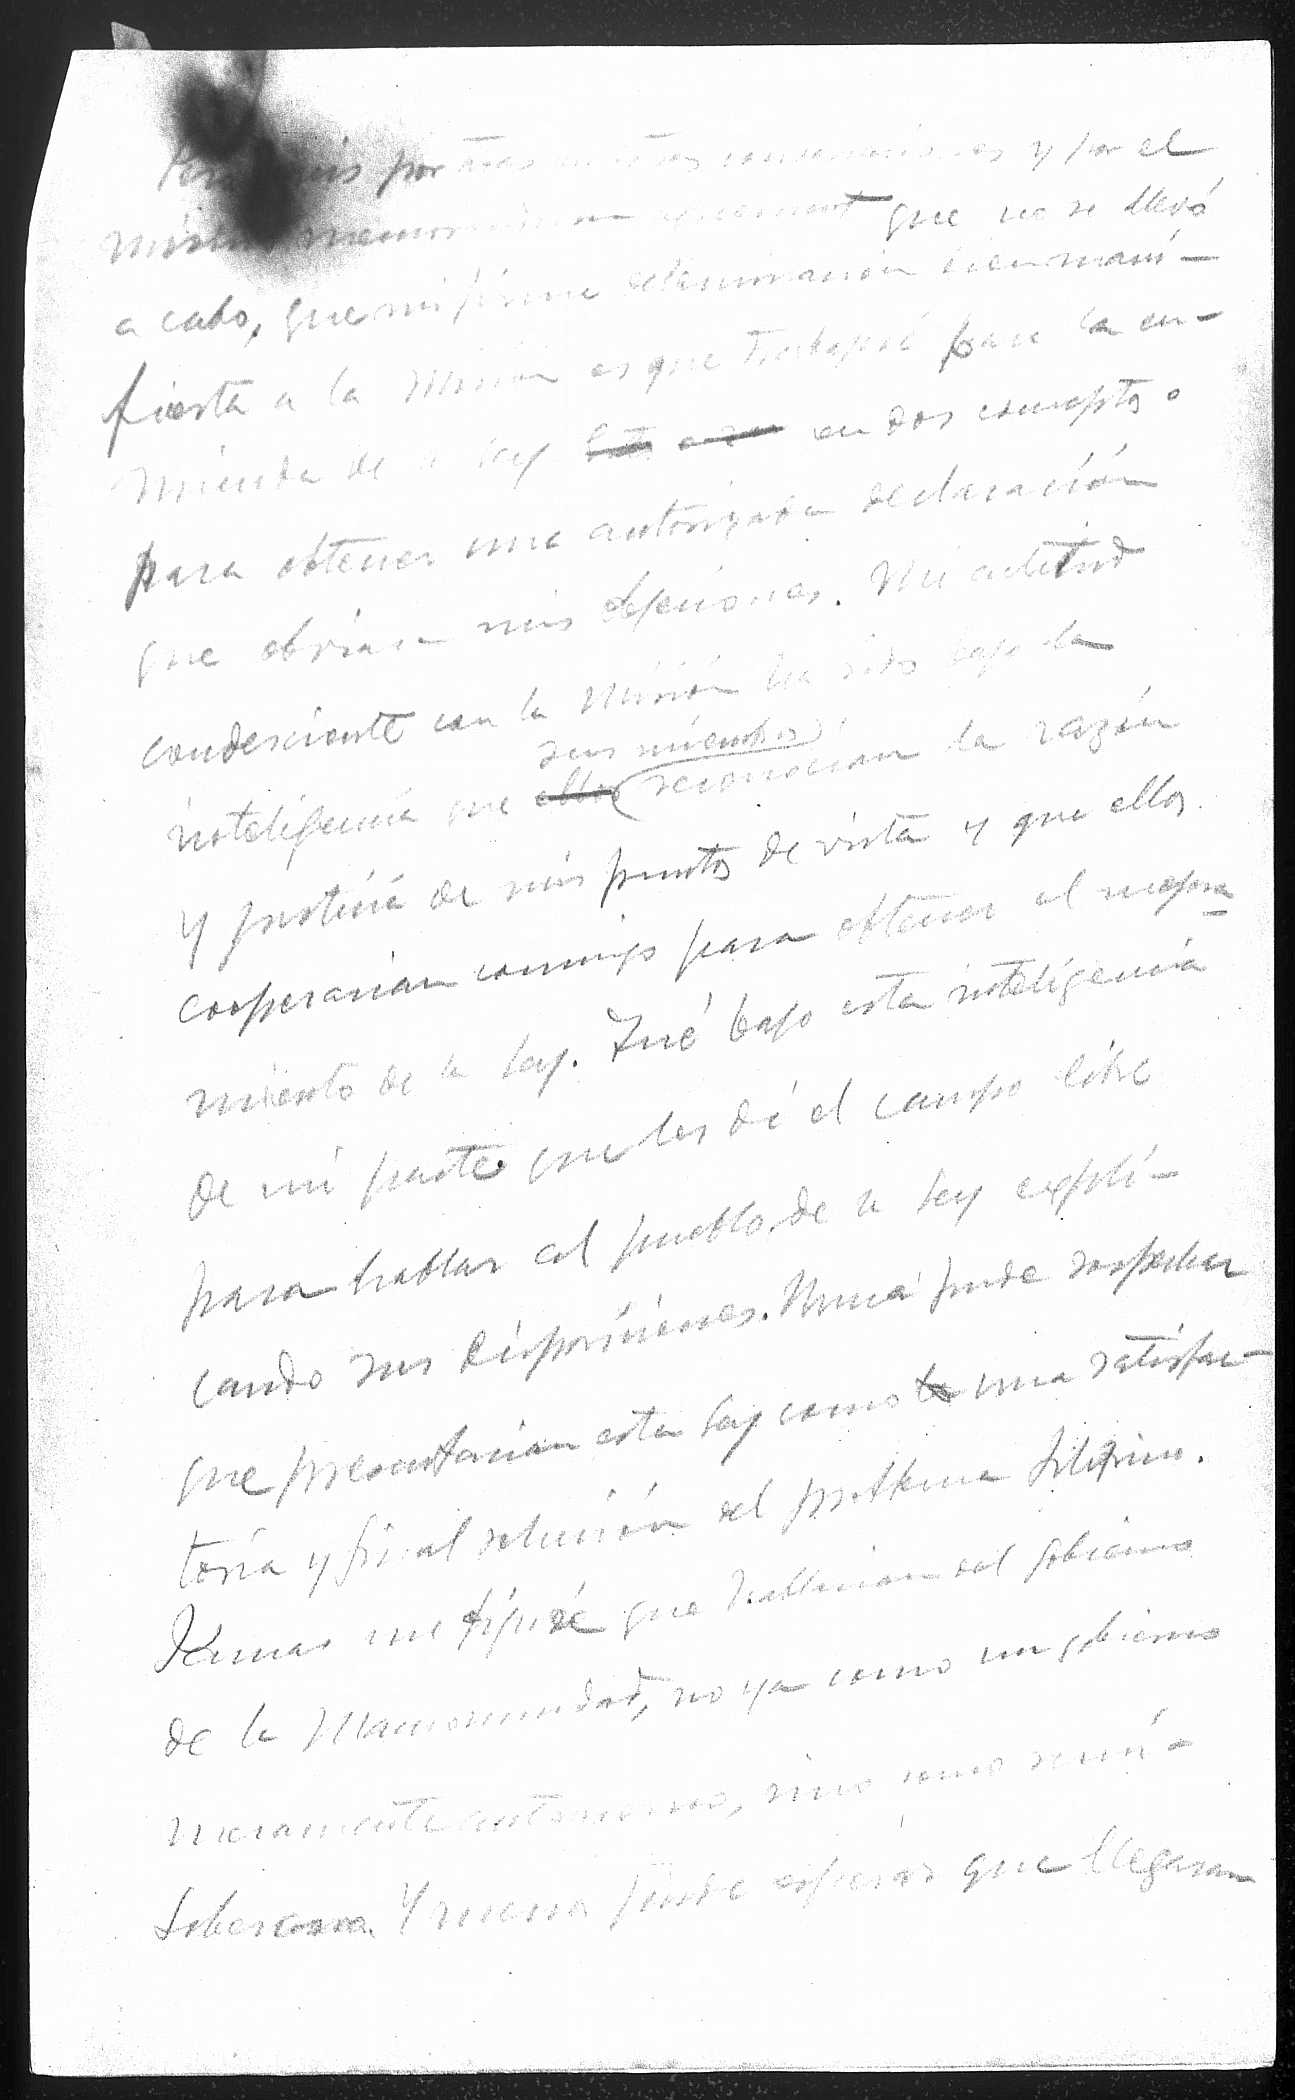 por y por el
que no se llevó
a cabo, que mi firme determinación bien mani-
fiesta a la Misión es que trabajaré para la en-
mienda de la Ley en dos conceptos o
para obtener una autorizada declaración
que obviara mis objeciones. Mi actitud
condesciente con la Misión ha sido bajo la
sus miembros
inteligencia que ellos reconocían la razón
y justicia de mis puntos de vista y que ellos
cooperarían conmigo para obtener el mejora-
miento de la Ley. Fué bajo esta inteligencia
de mi parte que les dí el campo libre
para hablar al pueblo de la Ley expli-
cando sus disposiciones. Nunca pude sospechar
que presentarían esta Ley como la una satisfac-
toria y final solución del problema filipino.
Jamas me figuré que hablarían del gobierno
de la Mancomunidad, no ya como un gobierno
meramente autonomo, sino como semi-
Soberano. Y nunca pude esperar que llegaran